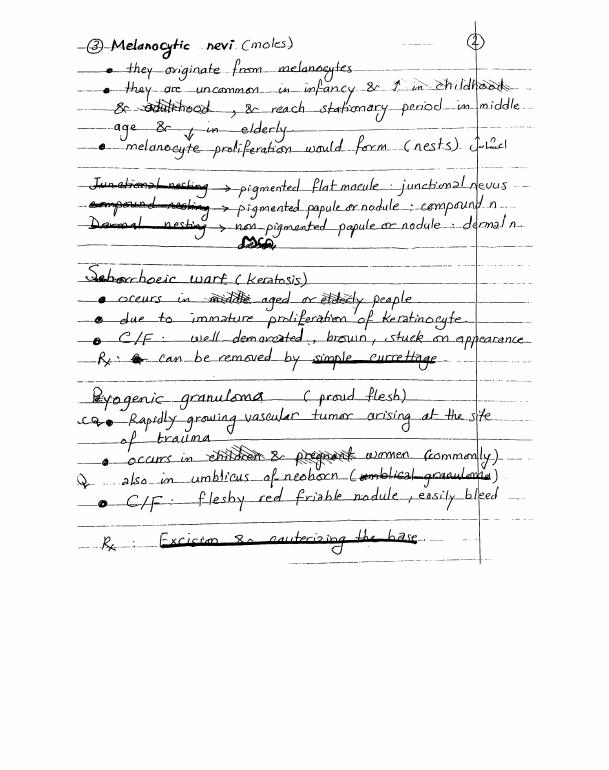 ③ Melanocytic nevi (moles) ②
• they originate from melanocytes
• they are uncommon in infancy & ↑ in childhood
& adulthood, & reach stationary period in middle
age & ↓ in elderly
• melanocyte proliferation would form (nests).
Junctional nesting → pigmented flat macule : junctional nevus
compound nesting → pigmented papule or nodule : compound n.
Dermal nesting → non-pigmented papule or nodule : dermal n.
MCQ
Seborrhoeic wart (keratosis)
• occurs in middle aged or elderly people
• due to immature proliferation of keratinocyte.
• C/F : well demarcated, brown, stuck on appearance
Rx : can be removed by simple currettage
Pyogenic granuloma (proud flesh)
• Rapidly growing vascular tumor arising at the site
of trauma
• occurs in children & pregnant women (commonly)
also in umblicus of neoborn (umblical granuloma)
• C/F : fleshy red friable nodule, easily bleed
Rx : Excision & cauterizing the base